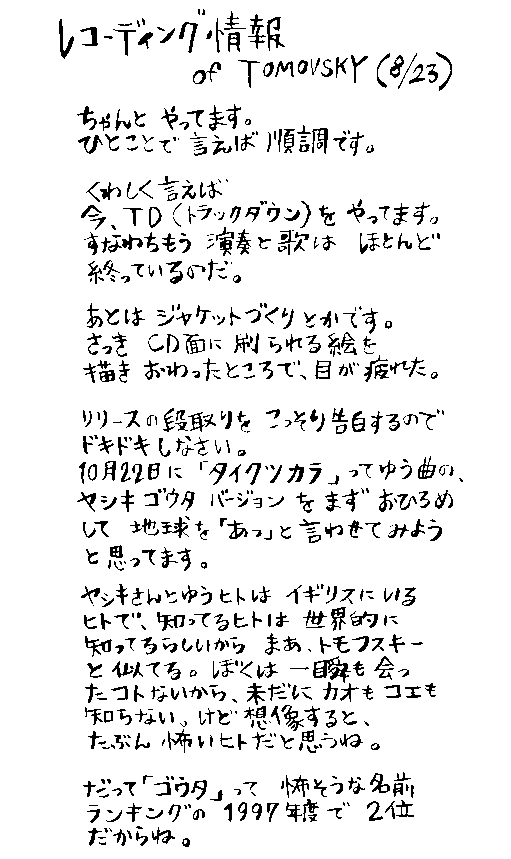 レコーディング・情報
of TOMOVSKY (8/23)
ちゃんと やってます。
ひとことで 言えば 順調です。
くわしく言えば
今、TD(トラックダウン)を やってます。
すなわちもう 演奏と歌は ほとんど
終っているのだ。
あとは ジャケットづくりとかです。
さっき CD面に 刷られる絵を
描き おわったところで、目が 疲れた。
リリースの段取りを こっそり告白するので
ドキドキしなさい。
10月22日に 「タイクツカラ」ってゆう曲の、
ヤシキ ゴウタ バージョン をまず おひろめ
して 地球を「あっ」と言わせてみよう
と思ってます。
ヤシキさんとゆうヒトは イギリスにいる
ヒトで、知ってるヒトは 世界的に
知ってるらしいから まあ、トモフスキー
と似てる。ぼくは 一瞬も会っ
たコトないから、未だに カオも コエも
知らない。けど 想像すると、
たぶん 怖いヒトだと思うね。
だって「ゴウタ」って 怖そうな名前
ランキングの 1997年度で 2位
だからね。